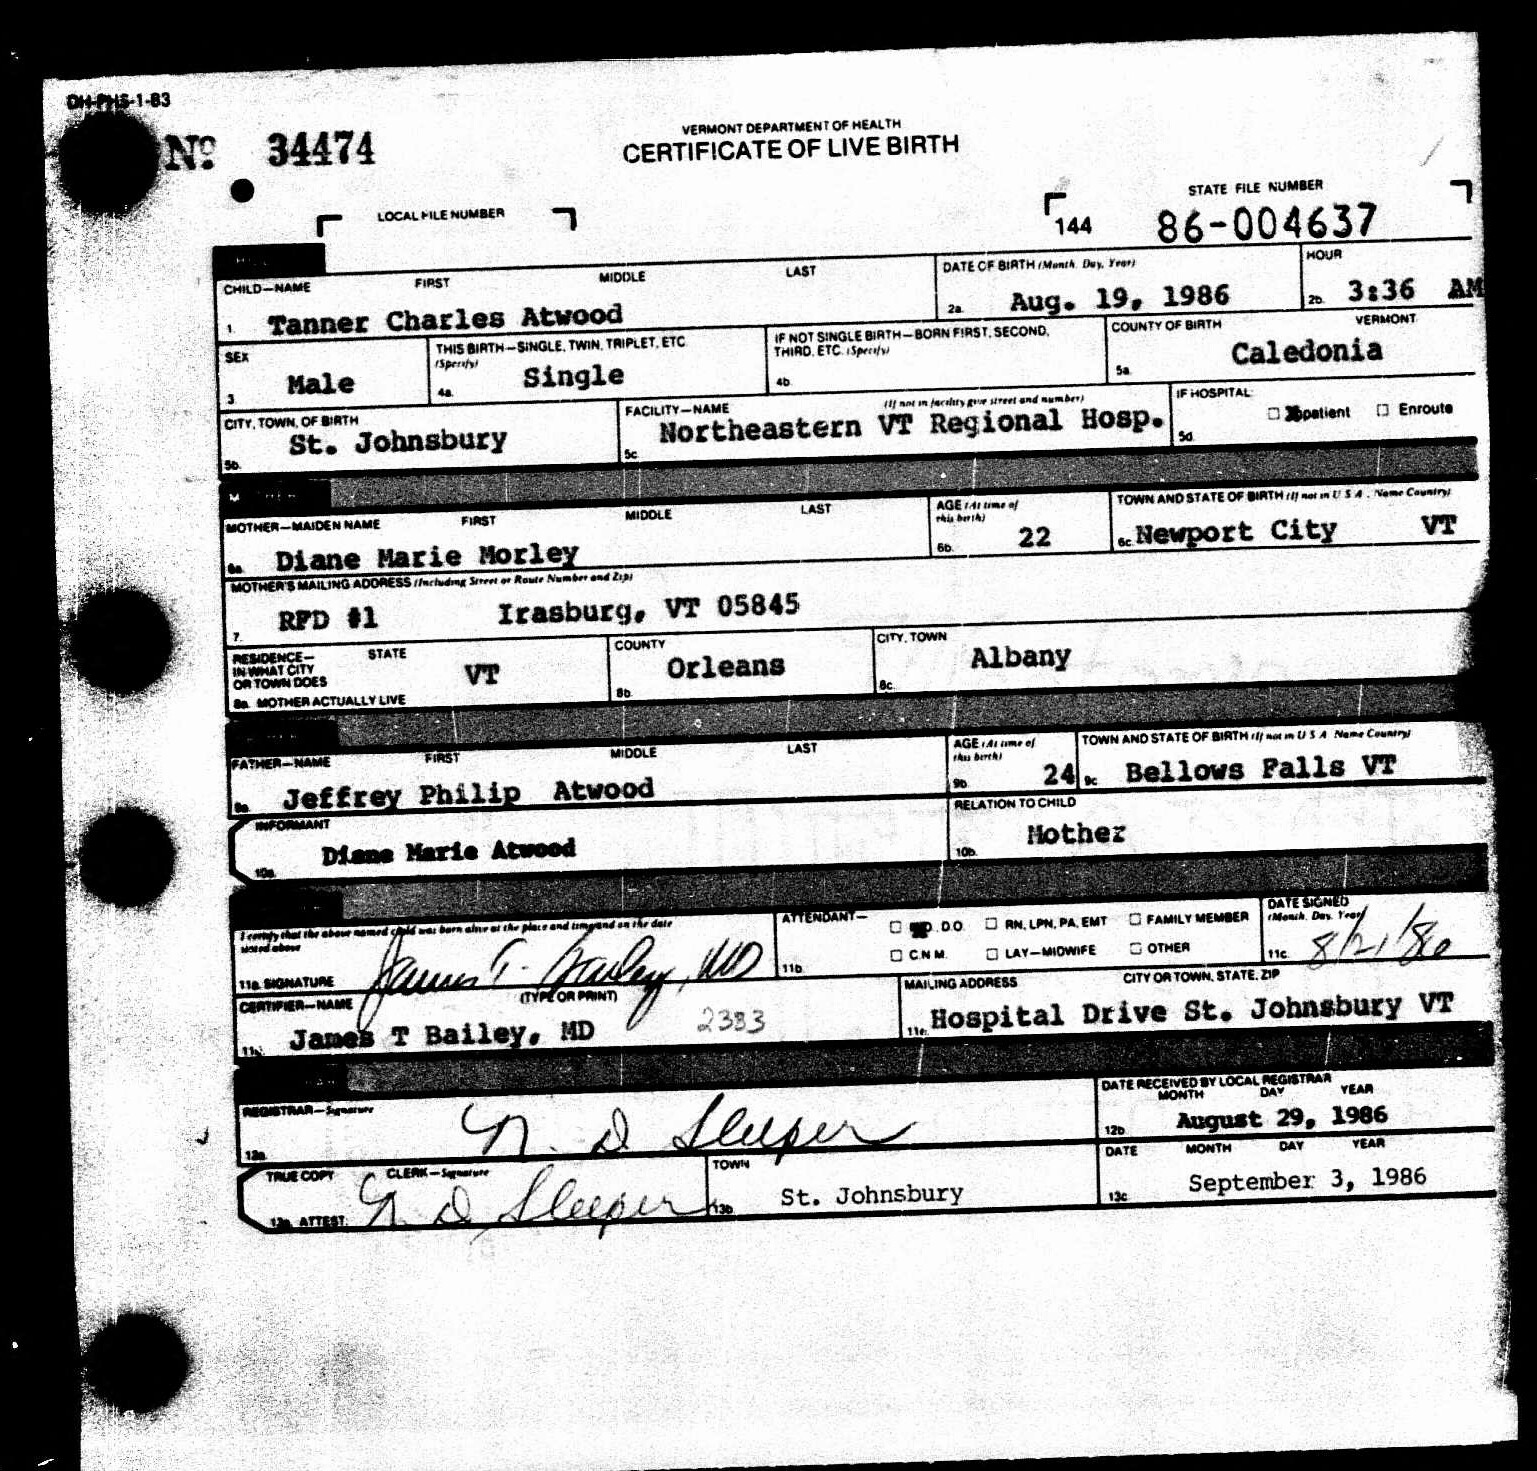 DH-PHS-1-83
Nº 34474
VERMONT DEPARTMENT OF HEALTH
CERTIFICATE OF LIVE BIRTH
LOCAL FILE NUMBER
STATE FILE NUMBER
144 86-004637
CHILD—NAME FIRST MIDDLE LAST
1. Tanner Charles Atwood
DATE OF BIRTH (Month, Day, Year)
2a. Aug. 19, 1986
HOUR
2b. 3:36 AM
SEX
3. Male
THIS BIRTH—SINGLE, TWIN, TRIPLET, ETC.
(Specify)
4a. Single
IF NOT SINGLE BIRTH—BORN FIRST, SECOND,
THIRD, ETC. (Specify)
4b.
COUNTY OF BIRTH VERMONT
5a. Caledonia
CITY, TOWN, OF BIRTH
5b. St. Johnsbury
FACILITY—NAME (If not in facility give street and number)
5c. Northeastern VT Regional Hosp.
IF HOSPITAL:
☐ patient ☐ Enroute
5d.
MOTHER—MAIDEN NAME FIRST MIDDLE LAST
6a. Diane Marie Morley
AGE (At time of
this birth)
6b. 22
TOWN AND STATE OF BIRTH (If not in U S A , Name Country)
6c. Newport City VT
MOTHER'S MAILING ADDRESS (Including Street or Route Number and Zip)
7. RFD #1 Irasburg, VT 05845
RESIDENCE— STATE
IN WHAT CITY
OR TOWN DOES
8a. MOTHER ACTUALLY LIVE
VT
COUNTY
8b. Orleans
CITY, TOWN
8c. Albany
FATHER—NAME FIRST MIDDLE LAST
9a. Jeffrey Philip Atwood
AGE (At time of
this birth)
9b. 24
TOWN AND STATE OF BIRTH (If not in U S A Name Country)
9c. Bellows Falls VT
INFORMANT
10a. Diane Marie Atwood
RELATION TO CHILD
10b. Mother
I certify that the above named child was born alive at the place and time and on the date
stated above
11a. SIGNATURE James T. Bailey, MD
ATTENDANT—
☐ D.O. ☐ RN, LPN, PA, EMT ☐ FAMILY MEMBER
11b. ☐ C.N.M. ☐ LAY—MIDWIFE ☐ OTHER
DATE SIGNED
(Month, Day, Year)
11c. 8/21/86
CERTIFIER—NAME (TYPE OR PRINT)
James T Bailey, MD 2383
MAILING ADDRESS CITY OR TOWN, STATE, ZIP
11e. Hospital Drive St. Johnsbury VT
REGISTRAR—Signature
12a. N. D Sleeper
DATE RECEIVED BY LOCAL REGISTRAR
MONTH DAY YEAR
12b. August 29, 1986
TRUE COPY CLERK—Signature
13a. ATTEST: N. D. Sleeper
TOWN
13b. St. Johnsbury
DATE MONTH DAY YEAR
13c. September 3, 1986